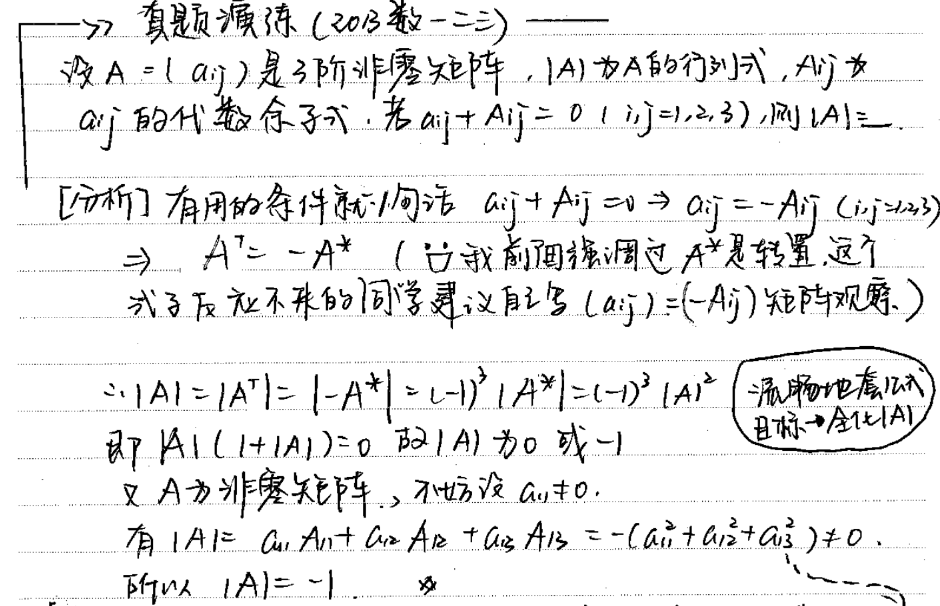 →> 真题演练(2013数一二三)
设A=(aij)是3阶非零矩阵,|A|为A的行列式,Aij为
aij的代数余子式.若aij+Aij=0(i,j=1,2,3),则|A|=__.
[分析]有用的条件就1句话 aij+Aij=0⇒aij=-Aij(i,j=1,2,3)
⇒ Aᵀ=-A* (我前面强调过A*是转置,这个
式子反应不来的同学建议自己写(aij)=(-Aij)矩阵观察.)
∴|A|=|Aᵀ|=|-A*|=(-1)³|A*|=(-1)³|A|²
流畅地套公式
目标→全化|A|
即|A|(1+|A|)=0 故|A|为0或-1
又A为非零矩阵,不妨设a₁₁≠0.
有|A|=a₁₁A₁₁+a₁₂A₁₂+a₁₃A₁₃=-(a₁₁²+a₁₂²+a₁₃²)≠0.
所以|A|=-1.